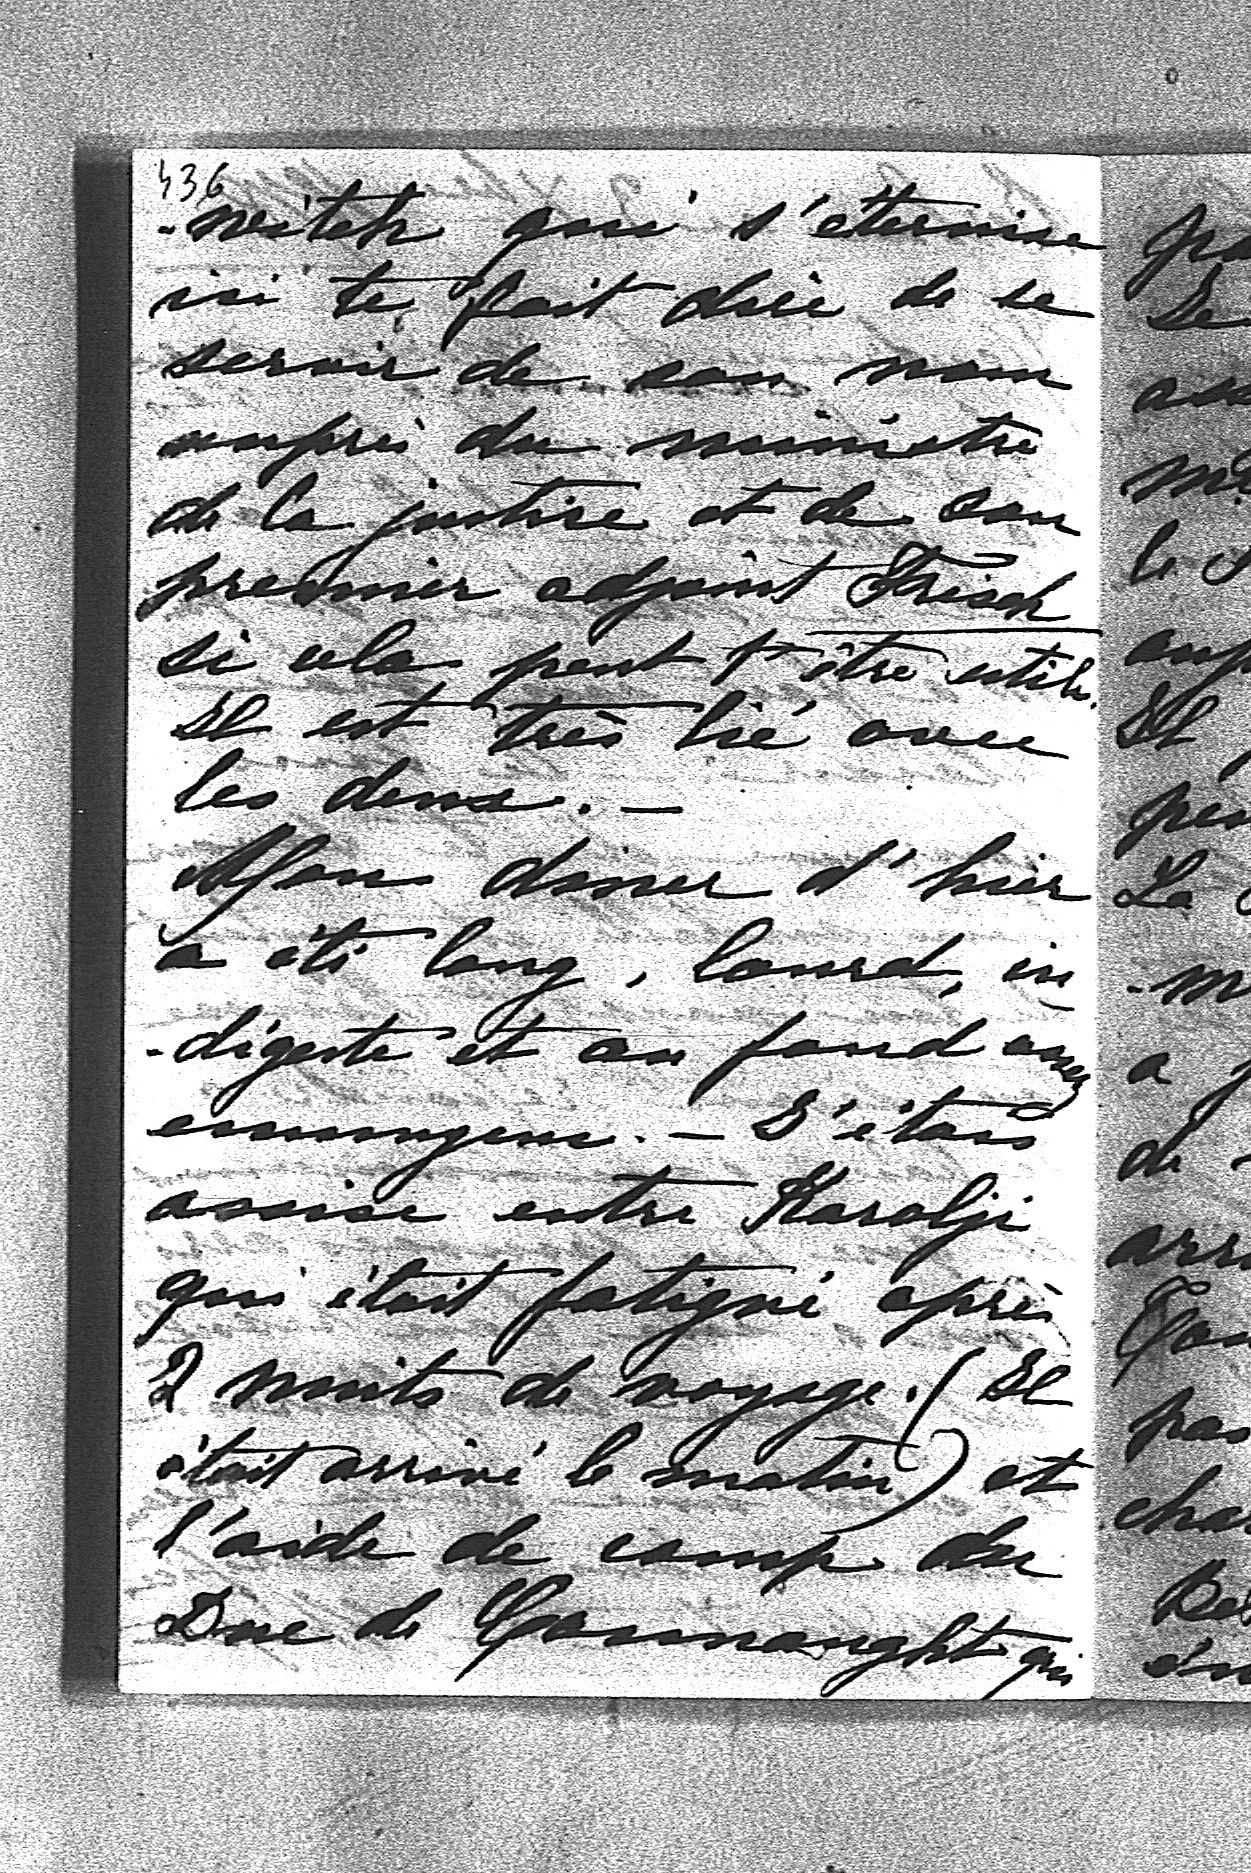 436
-neitch qui s'éternise
ici te fait dire de se
servir de son nom
auprès du ministre
de la justice et de son
premier adjoint Frisch
si cela peut t'être utile.
Il est très lié avec
les deux. —
Mon diner d'hier
a été long, lourd, in
-digeste et au fond assez
ennuyeux. — J'étais
assise entre Karolji
qui était fatigué après
2 nuits de voyage. (Il
était arrivé le matin) et
l'aide de camp du
Duc de Connaught qui